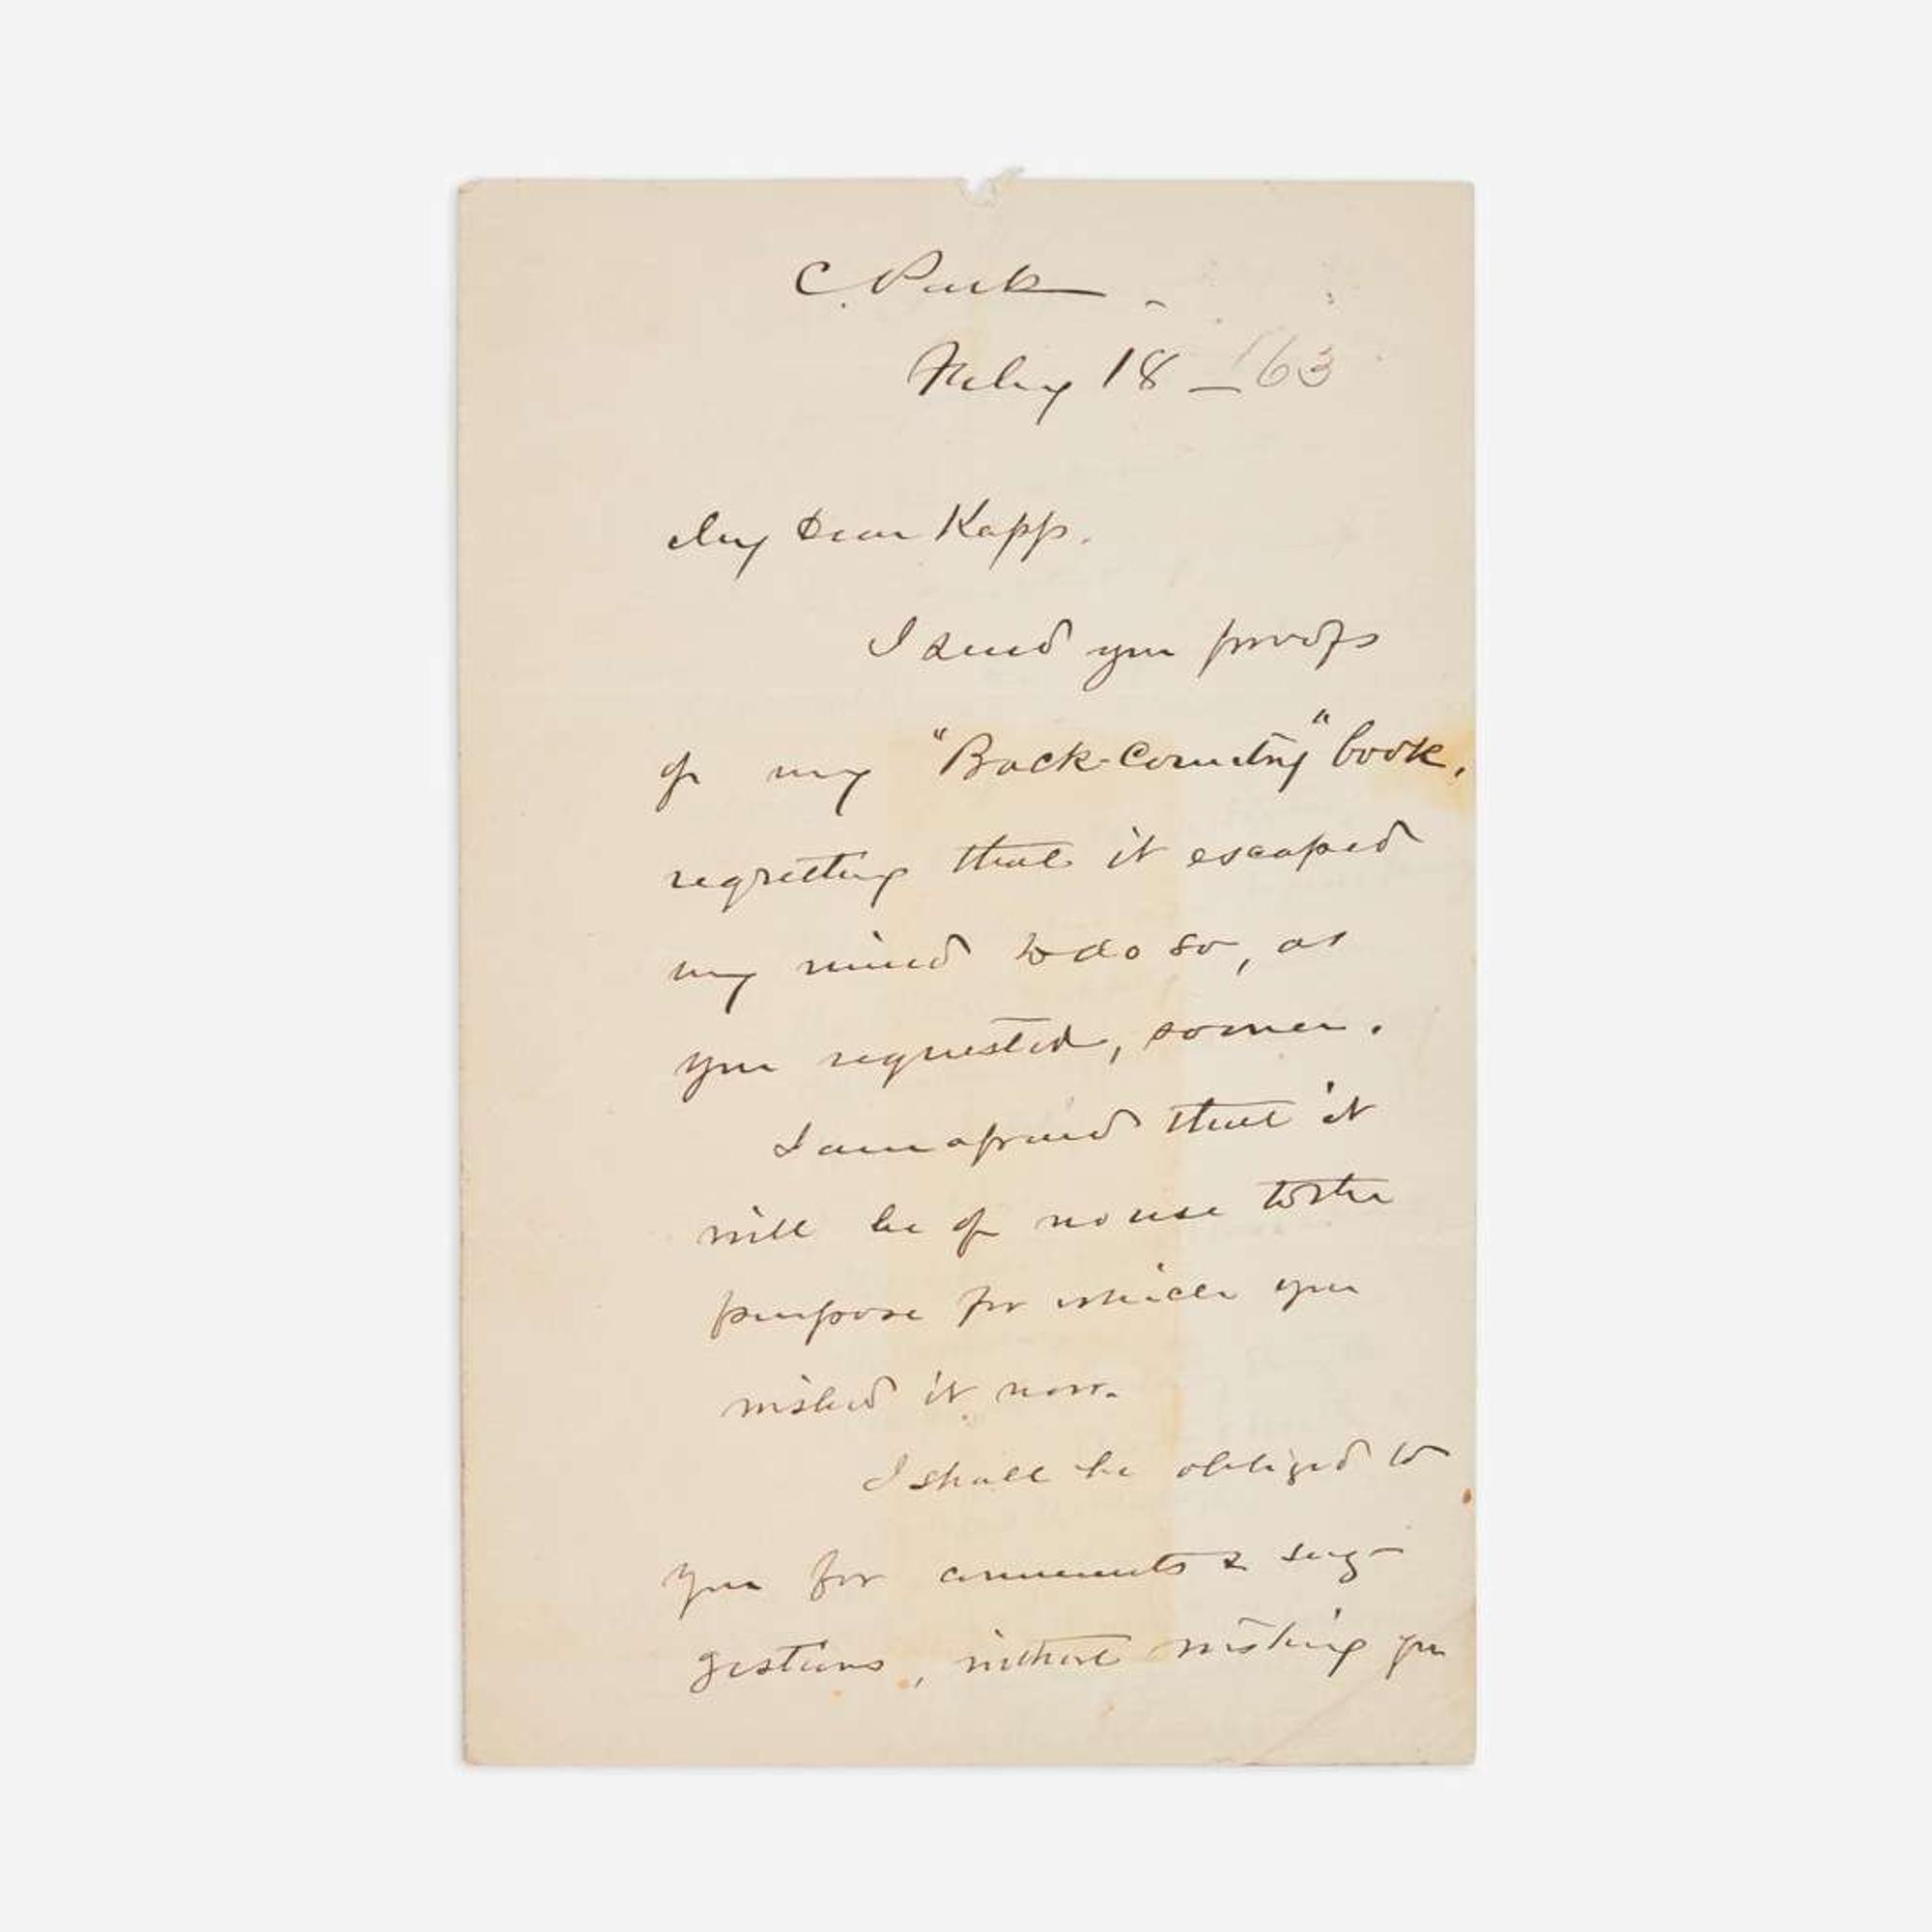 C. Park -
Feby 18 - '63
My Dear Kapp.
I send you proofs
of my "Back-Country" book,
regretting that it escaped
my mind to do so, as
you requested, sooner.
I am afraid that it
will be of no use to the
purpose for which you
wished it now.
I shall be obliged to
you for comments & sug-
gestions, without wishing you